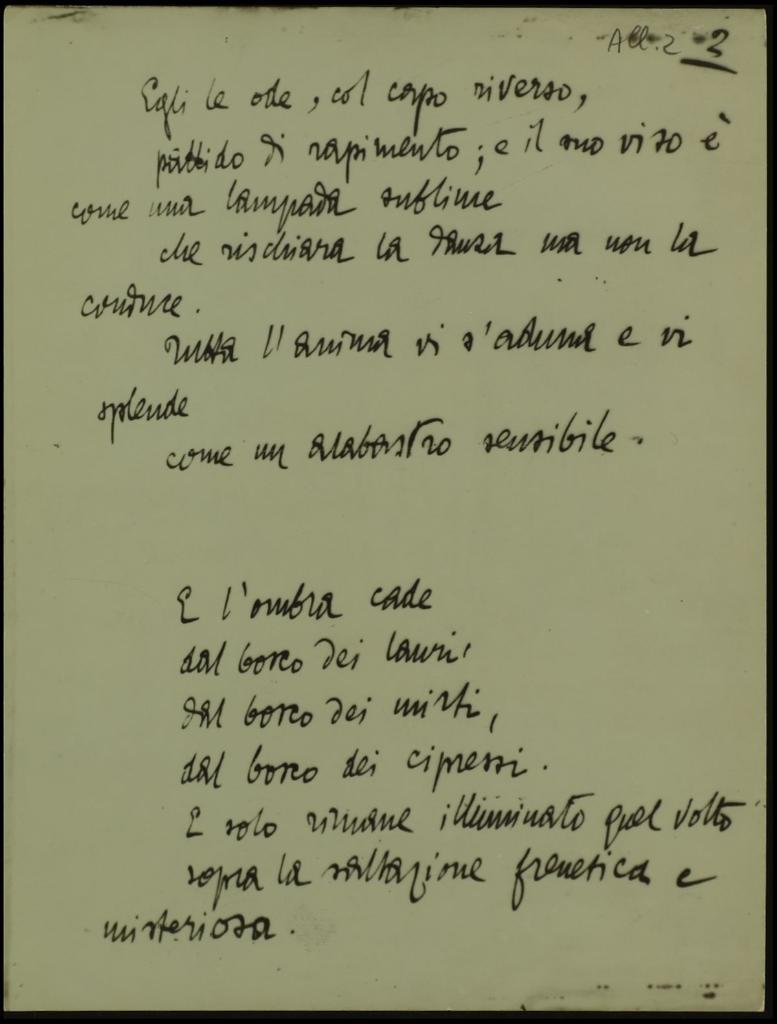 All. 2 2
Egli le ode, col capo riverso,
pallido di rapimento; e il suo viso è
come una lampada sublime
che rischiara la danza ma non la
conduce.
Tutta l'anima vi s'aduna e vi
splende
come un alabastro sensibile.
E l'ombra cade
dal bosco dei lauri,
dal bosco dei mirti,
dal bosco dei cipressi.
E solo rimane illuminato quel volto
sopra la saltazione frenetica e
misteriosa.